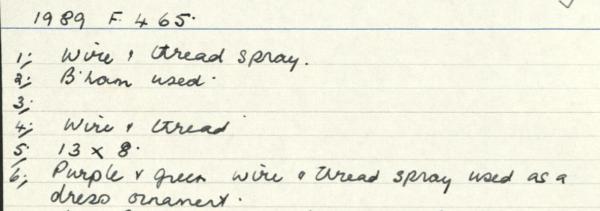 1989 F 465.
1; Wire & thread spray.
2; B'ham used.
3;
4; Wire & thread
5; 13 x 8.
6; Purple & green wire & thread spray used as a
dress ornament.